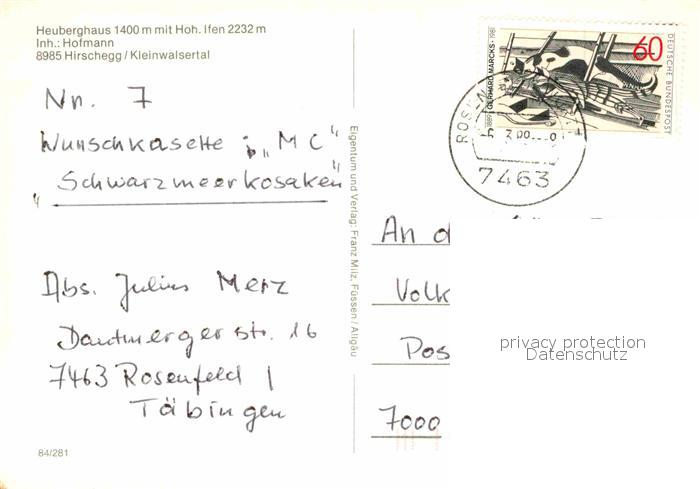 Heuberghaus 1400 m mit Hoh. Ifen 2232 m
Inh.: Hofmann
8985 Hirschegg / Kleinwalsertal
Nr. 7
Wunschkasette : „MC“
„Schwarzmeerkosaken“
Abs. Julius Merz
Dautmergerstr. 16
7463 Rosenfeld 1
Täbingen
84/281
Eigentum und Verlag: Franz Milz, Füssen / Allgäu
60
DEUTSCHE BUNDESPOST
GERHARD MARCKS
7463
An d
Volk
Pos
7000
privacy protection
Datenschutz